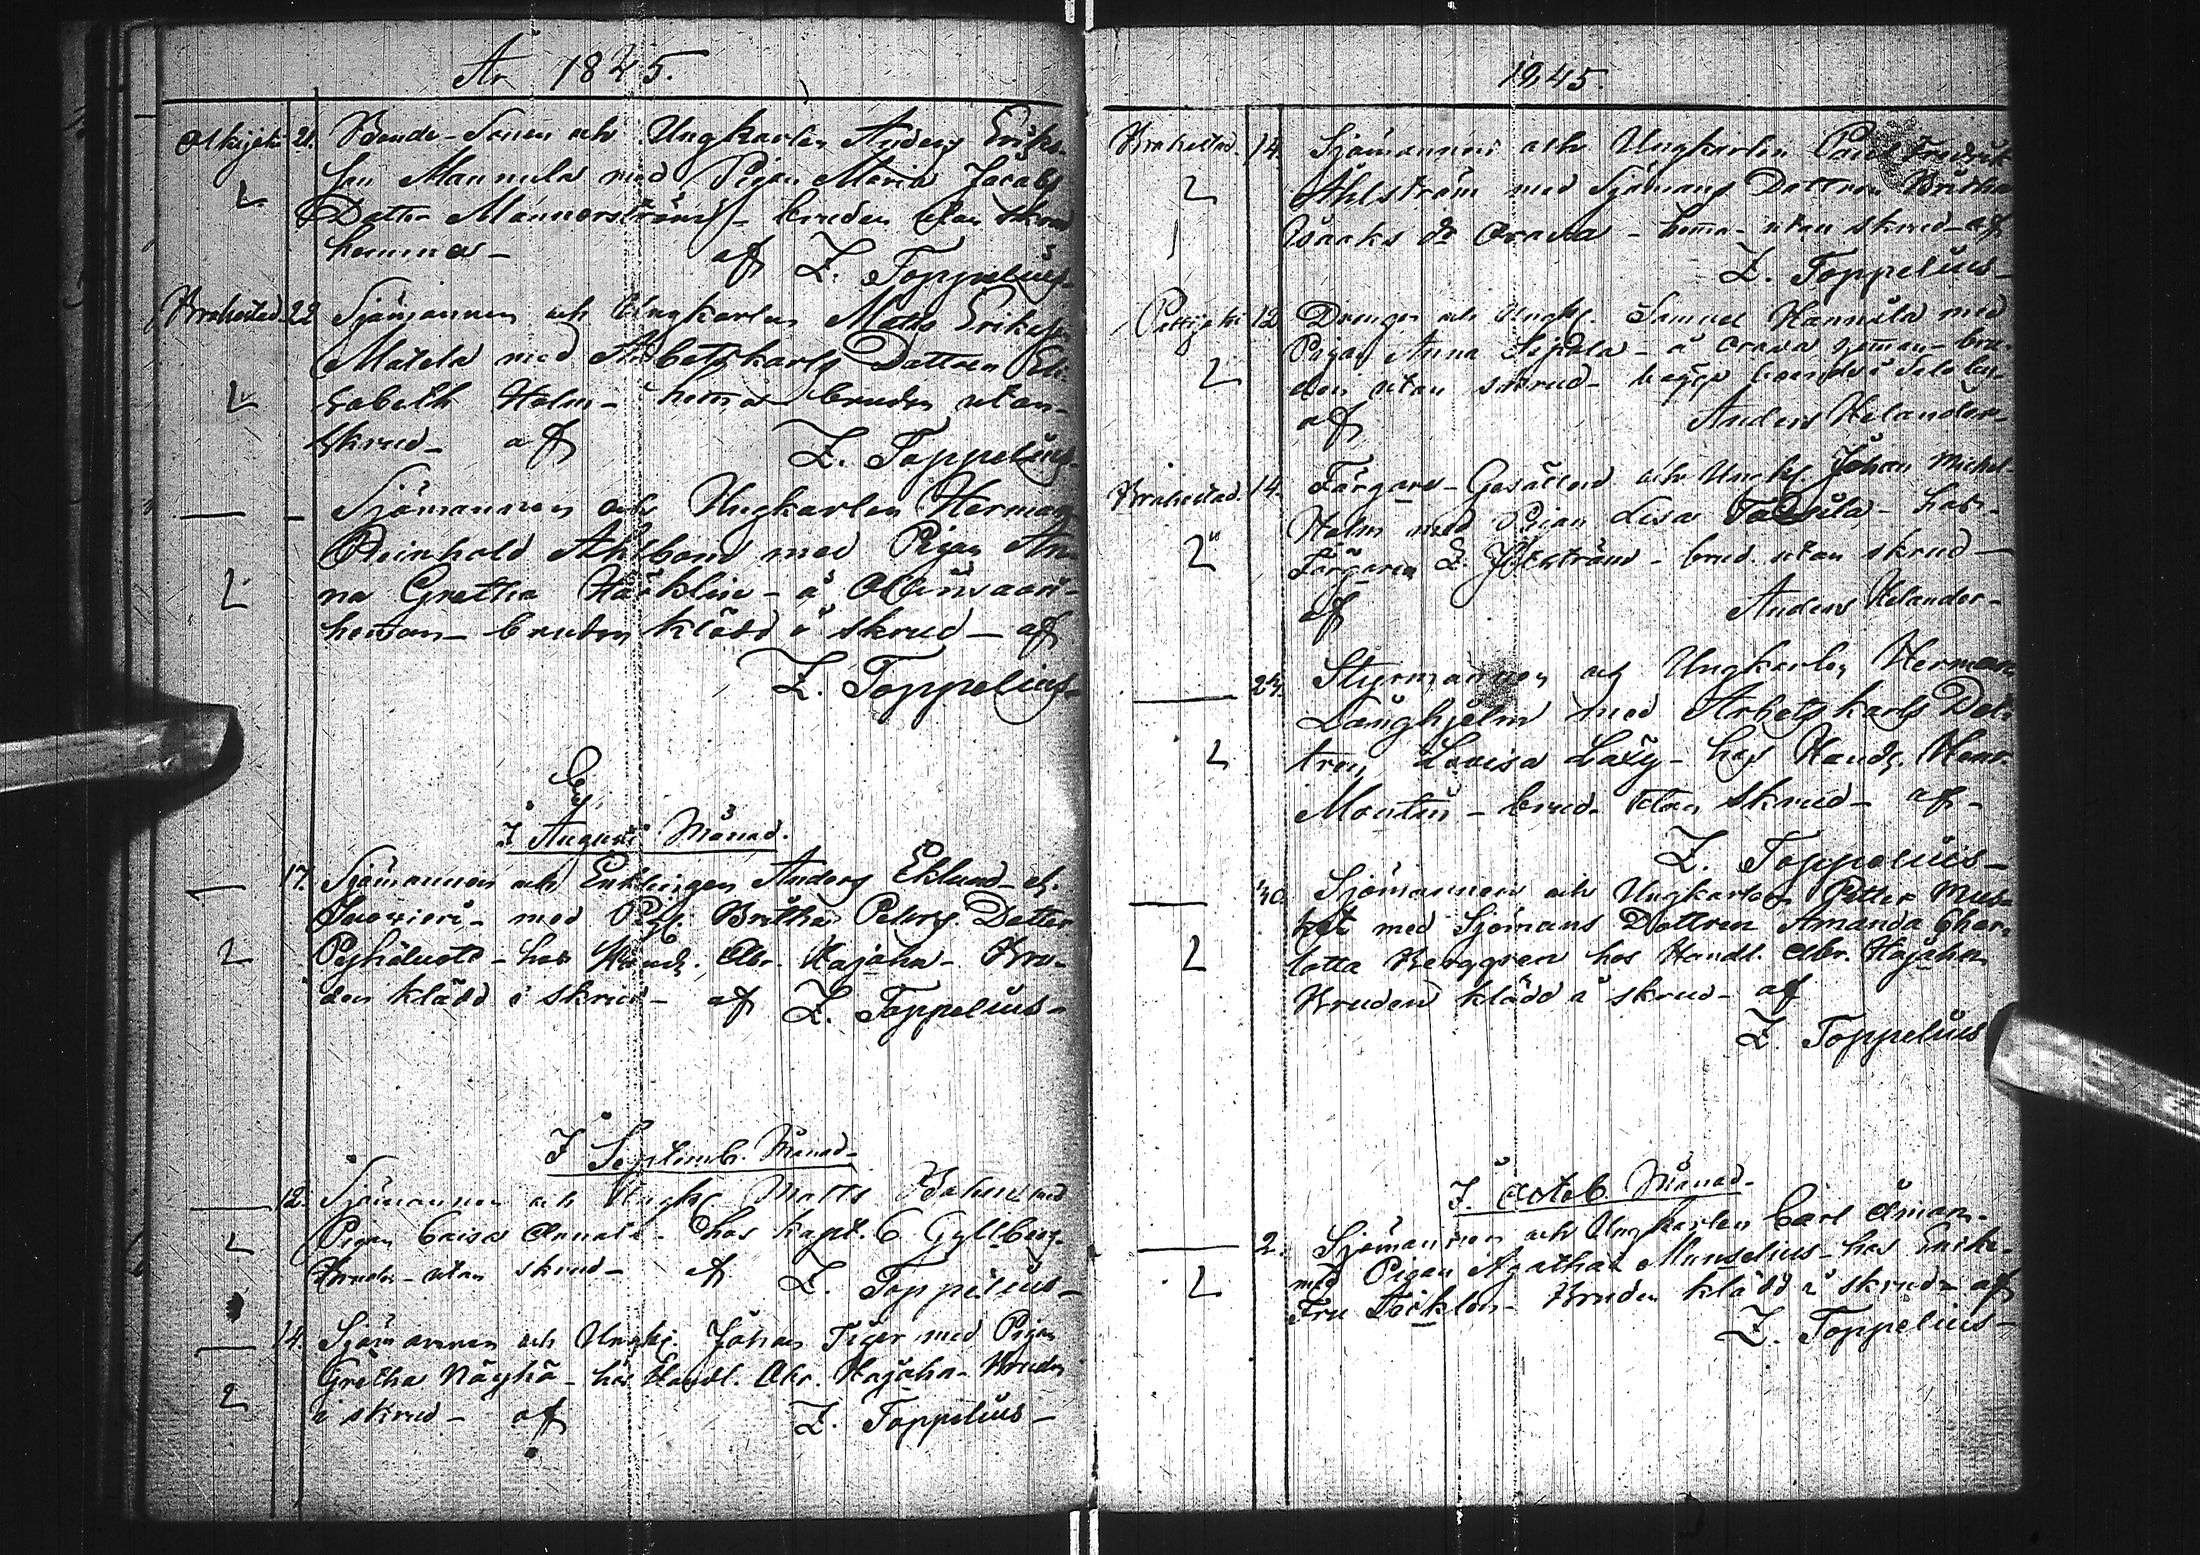 År 1845.
Olkijoki 21. Bonde-Sonen och Ungkarlen Anders Eriks-
son Mannila med Pigan Maria Jacobs
2
Dotter Mannerström - bruden utan skrud
hemma - af Z. Toppelius -
Brahestad 22 Sjömannen och Ungkarlen Matts Eriksson
Matela med Arbetskarls Dottren Eli-
2
sabeth Holm - hemma bruden utan
skrud - af Z. Toppelius -
— - Sjömannen och Ungkarlen Herman
Reinhold Ahlbom med Pigan An-
2
na Gretha Härklin - å
- bruden klädd i skrud - af
Z. Toppelius -
I Augusti Månad.
— 17. Sjömannen och Enklingen Anders Eklund
- med Pig. Britha Peters Dotter
2
Pyhäluoto - hos Handl. Abr. Kajahn - Bru-
den klädd i skrud - af Z. Toppelius -
I Septemb. Månad -
— 12. Sjömannen och Ungk. Matts Bohm med
2
Pigan Caisa Annala - hos Kapt. C Gyllberg -
Bruden - utan skrud - af Z. Toppelius -
— 14. Sjömannen och Ungk. Johan Tiger med Pigan
Gretha Näyhä - hos Handl. Abr. Kajahn - Bruden
2
i skrud - af Z. Toppelius -
1845.
Brahestad. 14. Sjömannen och Ungkarlen Paul Fredrik
2
Ahlström med Sjömans Dottren Britha
1
Isaaks dr Orava - hemma - utan skrud - af
Z. Toppelius -
Pattijoki 12 Drengen och Ungk. Samuel Hannila med
Pigan Anna Sipola - å Orava hemman - bru-
2
den utan skrud - begge boende i Salo by -
af Anders Helander -
Brahestad. 14. Färgare-Gesällen och Ungk. Johan Michel
Holm med Pigan Lisa - hos
2
Färgaren - brud. utan skrud -
af Anders Helander -
— 24. Styrmannen och Ungkarlen Herman
Långhjelm med Arbetskarls Dot-
2
tren Lovisa - hos Handl. Henr.
Montin - brud. utan skrud - af -
Z. Toppelius -
— 30. Sjömannen och Ungkarlen Petter
med Sjömans Dottren Amanda Char-
2
lotta Berggren hos Handl. Abr. Kajahn
Bruden klädd i skrud - af
Z. Toppelius
I Octob. Månad -
— 2. Sjömannen och Ungkarlen Carl Åman -
2
med Pigan Agatha Munselius - hos Enke-
Fru - Bruden klädd i skrud - af
Z. Toppelius -